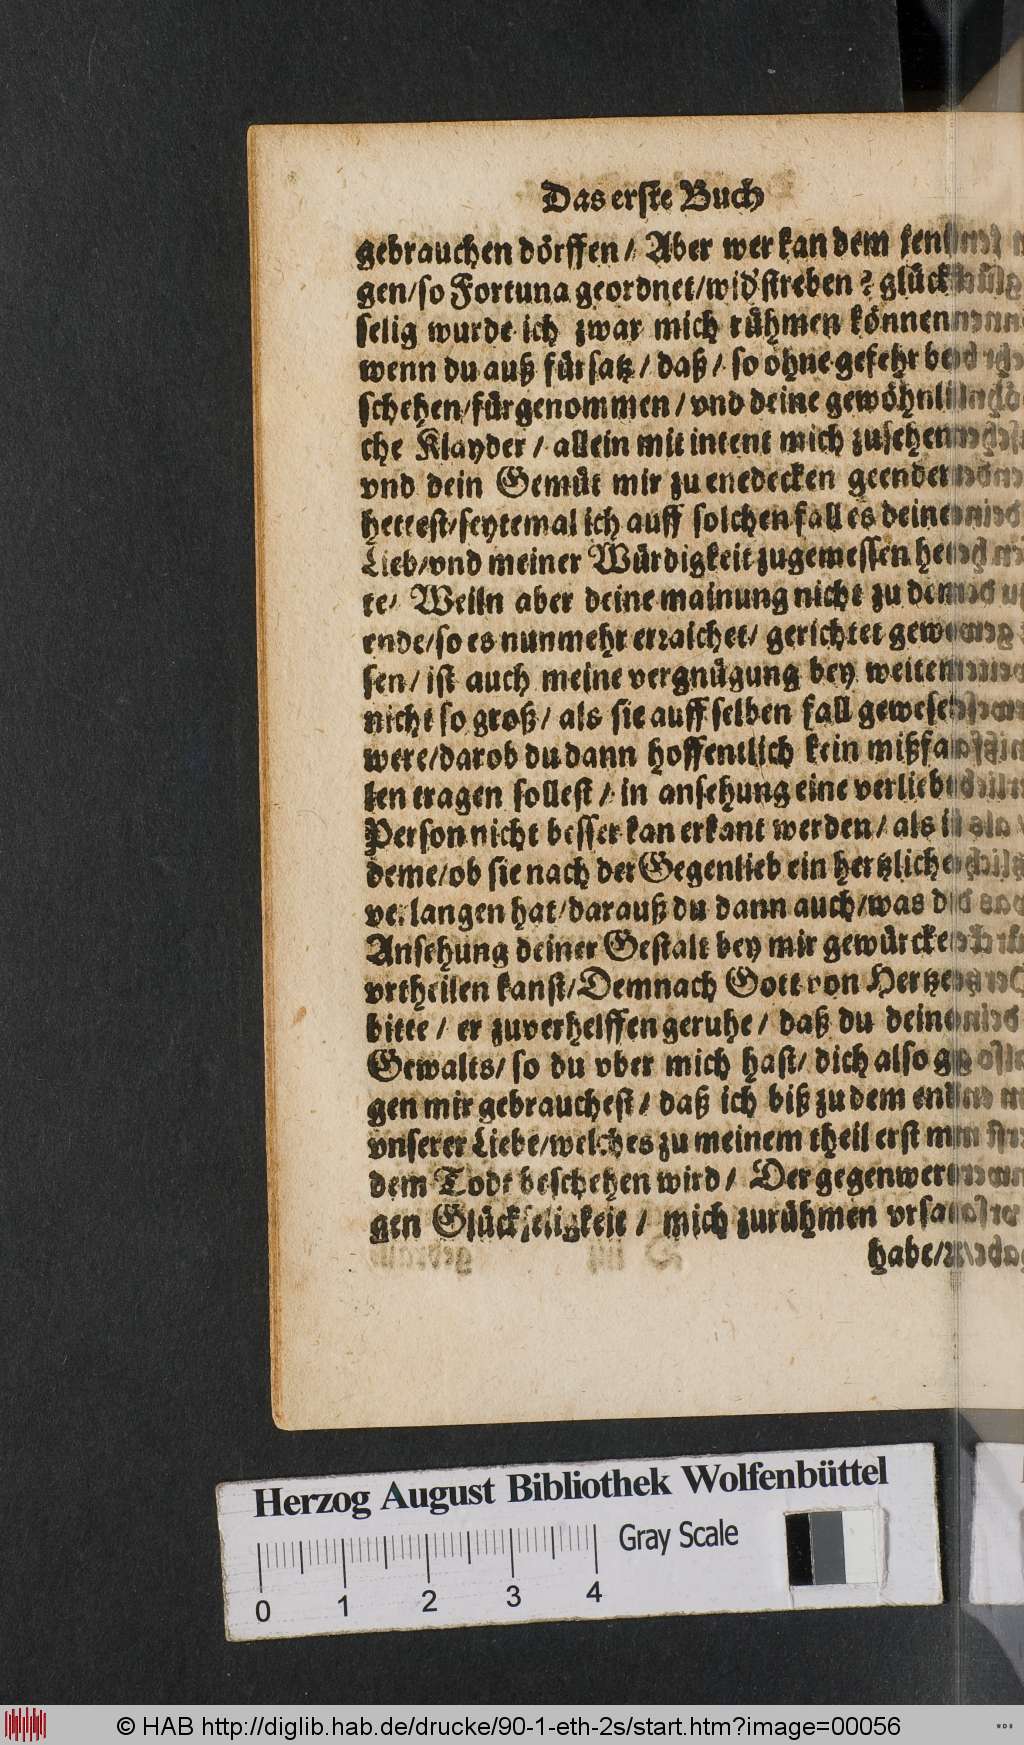 Das erste Buch
gebrauchen dörffen / Aber wer kan dem
gen / so Fortuna geordnet / wid'streben ? glück
selig wurde ich zwar mich rühmen können
wenn du auß fürsatz / daß / so ohne gefehr
schehen / fürgenommen / vnd deine gewöhnli
che Klayder / allein mit intent mich zusehen
vnd dein Gemüt mir zu entdecken geendert
hettest / seytemal ich auff solchen fall es deiner
Lieb / vnd meiner Würdigkeit zugemessen het
te / Weiln aber deine mainung nicht zu dem
ende / so es nunmehr erraichet / gerichtet gewe
sen / ist auch meine vergnügung bey weitem
nicht so groß / als sie auff selben fall gewesen
were / darob du dann hoffentlich kein mißfal
len tragen sollest / in ansehung eine verliebte
Person nicht besser kan erkant werden / als
deme / ob sie nach der Gegenlieb ein hertzliches
verlangen hat / darauß du dann auch / was die
Ansehung deiner Gestalt bey mir gewürcket
vrtheilen kanst / Demnach Gott von Hertzen
bitte / er zuverhelffen geruhe / daß du deines
Gewalts / so du vber mich hast / dich also ge
gen mir gebrauchest / daß ich biß zu dem end
vnserer Liebe / welches zu meinem theil erst mit
dem Todt beschehen wird / Der gegenwerti
gen Glückseligkeit / mich zurühmen vrsach
habe /
Herzog August Bibliothek Wolfenbüttel
Gray Scale
0 1 2 3 4
© HAB http://diglib.hab.de/drucke/90-1-eth-2s/start.htm?image=00056